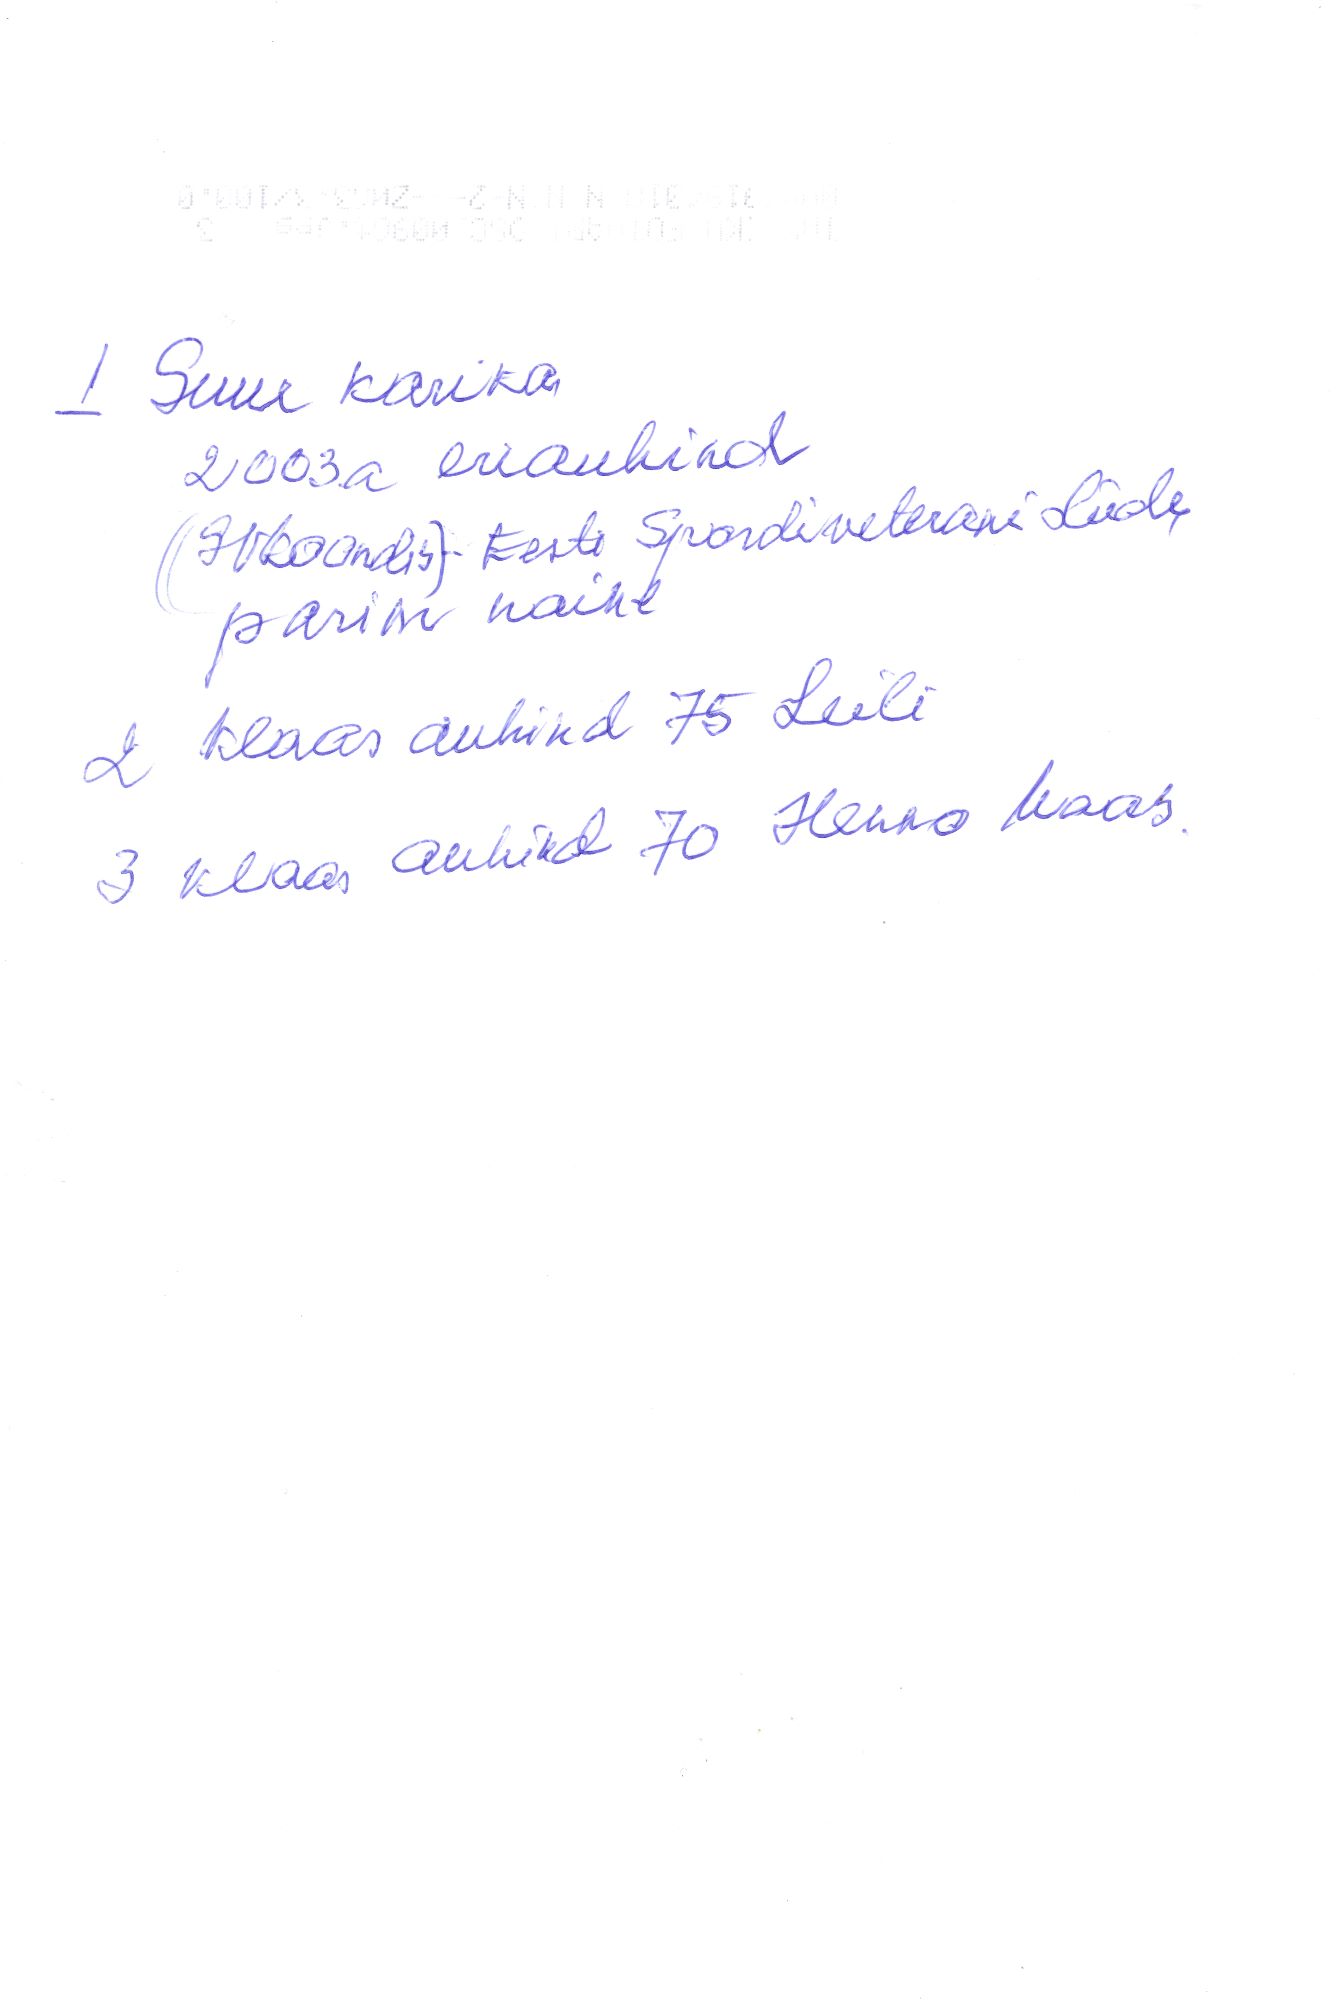 1 Suur karikas
2003.a eriauhind
Eesti Spordiveterani Liidu
parim naine
2 klaas auhind 75 Leili
3 klaas auhind 70 Henno Maas.